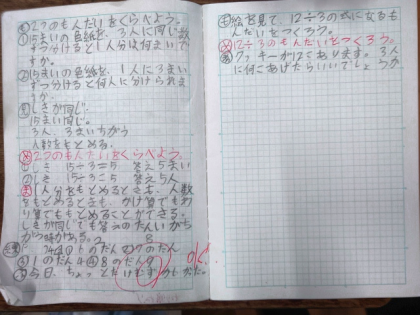 2つのもんだいをくらべよう。
①15まいの色紙を、3人に同じ数
ずつ分けると1人分は何まいで
すか。
②15まいの色紙を、1人に3まい
ずつ分けると何人に分けられま
すか。
しきが同じ。
15まい同じ。
3人 3まいちがう
人数をもとめる。
2つのもんだいをくらべよう。
①しき 15÷3=5 答え5まい
②しき 15÷3=5 答え5人
1人分をもとめるときも、人数
をもとめるときも、かけ算でもわ
り算でももとめることができる。
しきが同じでも答えの
がう。
のだん
①のだん4 8のだん
今日、ちょっとだけむずかしかった。
OK!
絵を見て、12÷3の式になるも
んだいをつくろう。
12÷3のもんだいをつくろう。
クッキーが12こあります。3人
に何こあげたらいいでしょうか